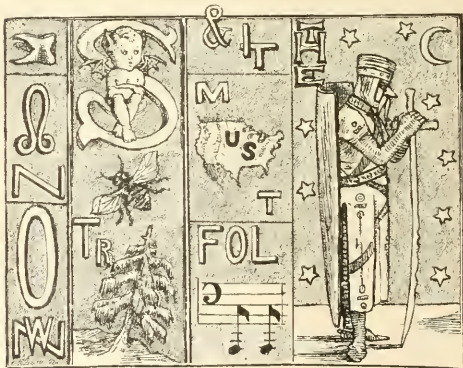 N
O
S
TR
& IT
M
US
T
FOL
THE